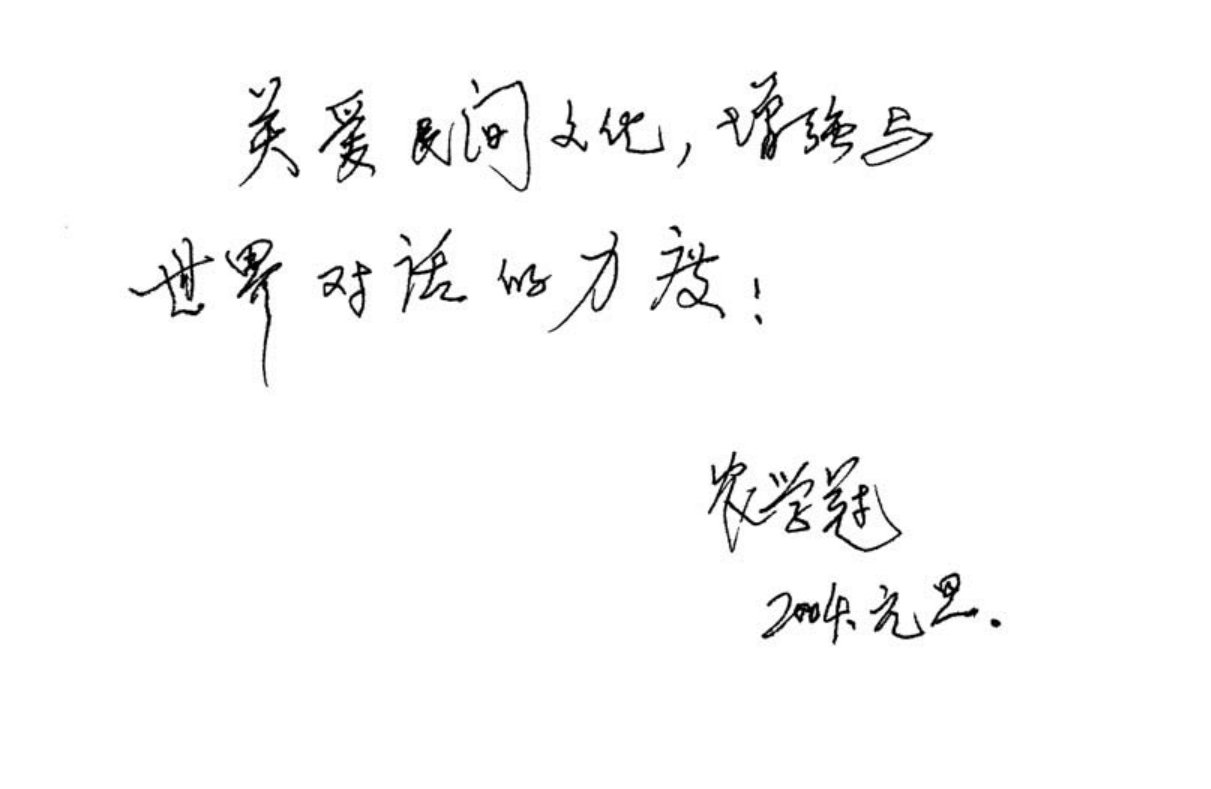 关爱民间文化，增强与
世界对话的力度！
农学冠
2004.元旦.